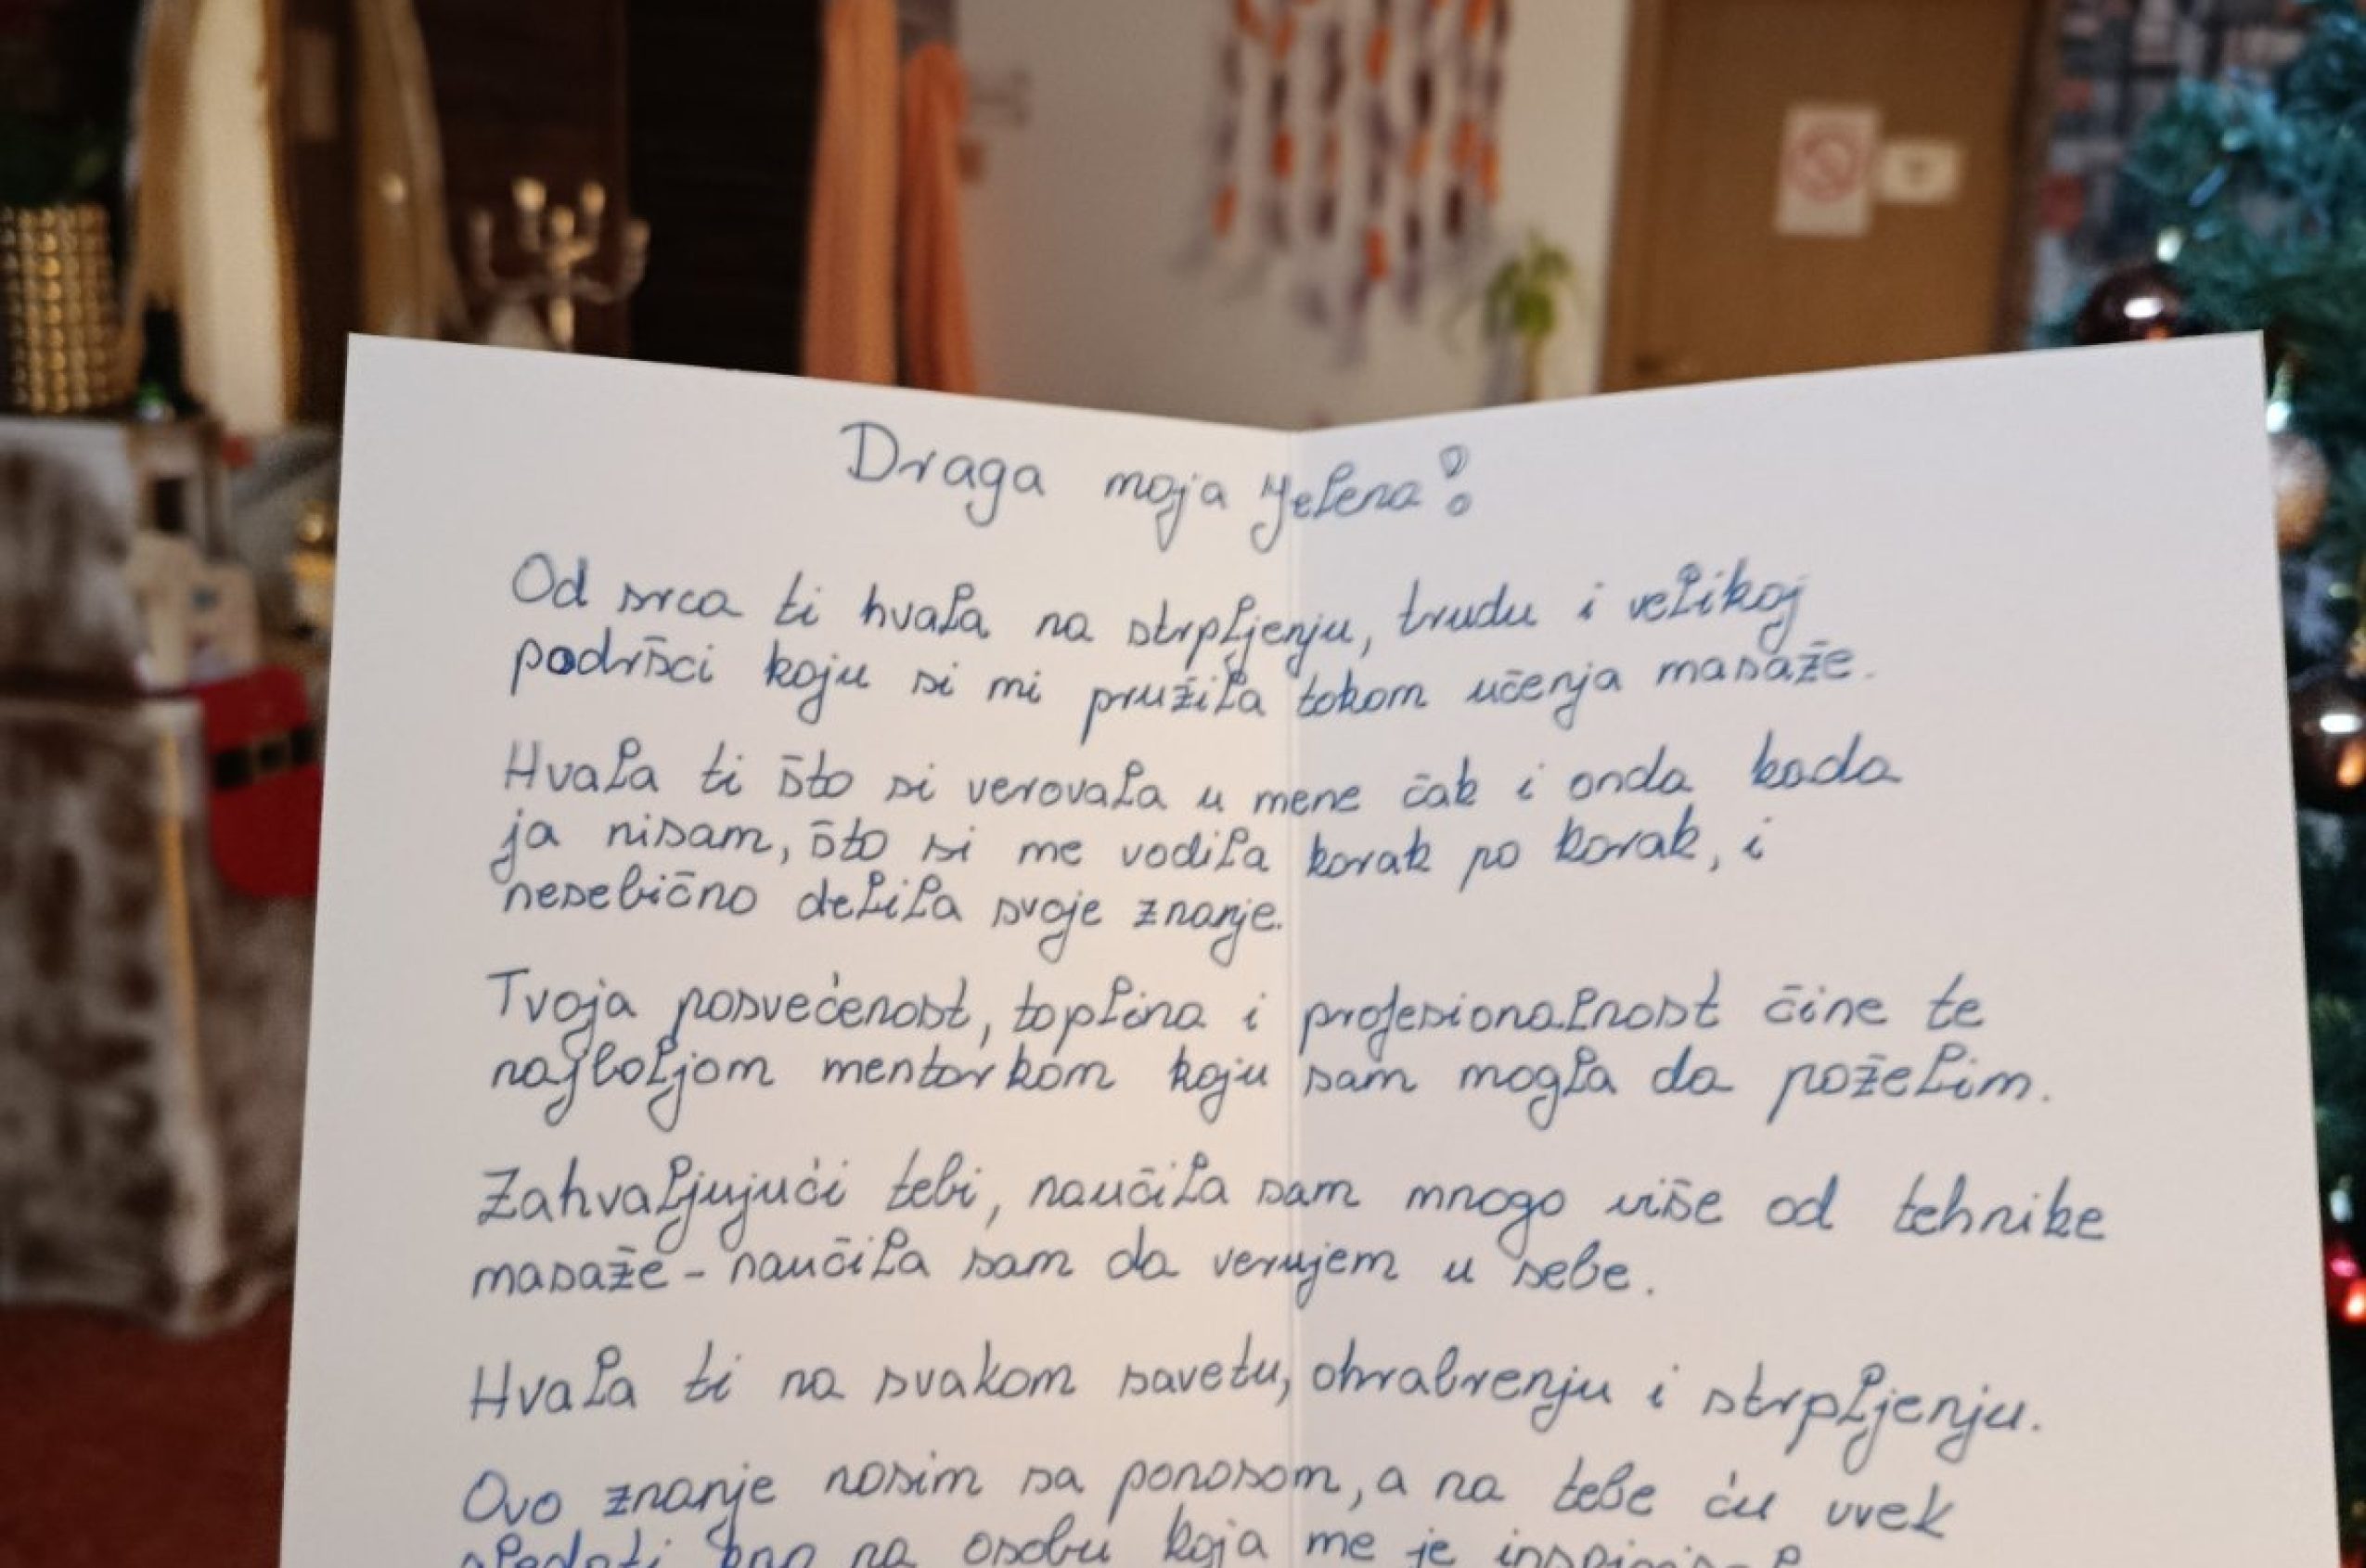 Draga moja Jelena!
Od srca ti hvala na strpljenju, trudu i velikoj
podršci koju si mi pružila tokom učenja masaže.
Hvala ti što si verovala u mene čak i onda kada
ja nisam, što si me vodila korak po korak, i
nesebično delila svoje znanje.
Tvoja posvećenost, toplina i profesionalnost čine te
najboljom mentorkom koju sam mogla da poželim.
Zahvaljujući tebi, naučila sam mnogo više od tehnike
masaže - naučila sam da verujem u sebe.
Hvala ti na svakom savetu, ohrabrenju i strpljenju.
Ovo znanje nosim sa ponosom, a na tebe ću uvek
gledati kao na osobu koja me je